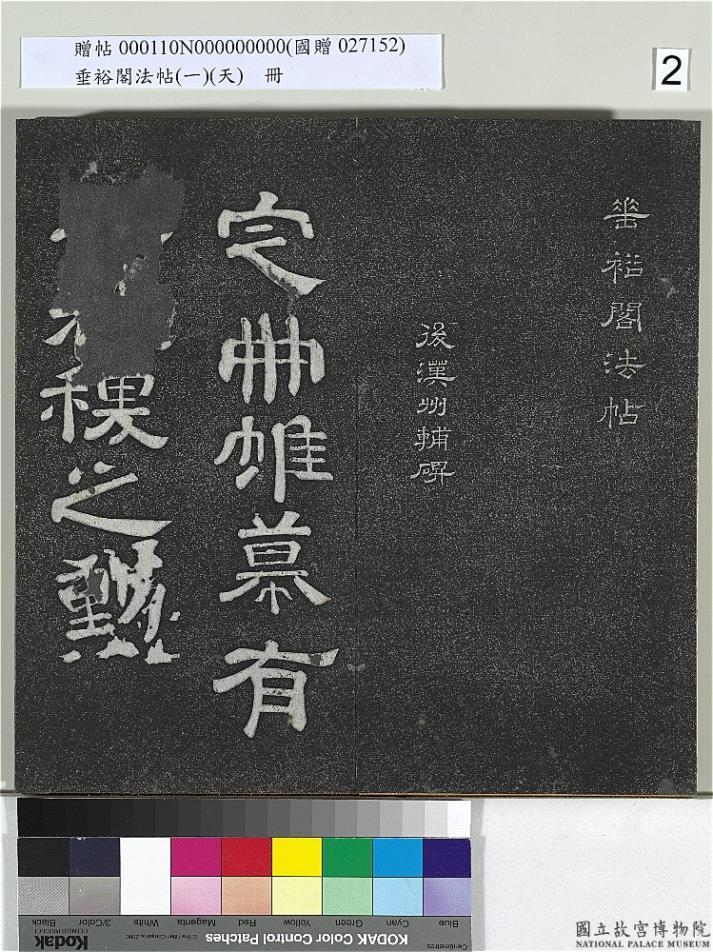 贈帖 000110N000000000(國贈 027152)
垂裕閣法帖(一)(天) 冊
2
垂裕閣法帖
後漢州輔碑
定冊帷幕有
稞之
Black
3/Color
White
Magenta
Red
Yellow
Green
Cyan
Blue
Kodak
LICENSED PRODUCT
KODAK Color Control Patches
Centimetres
國立故宮博物院
NATIONAL PALACE MUSEUM